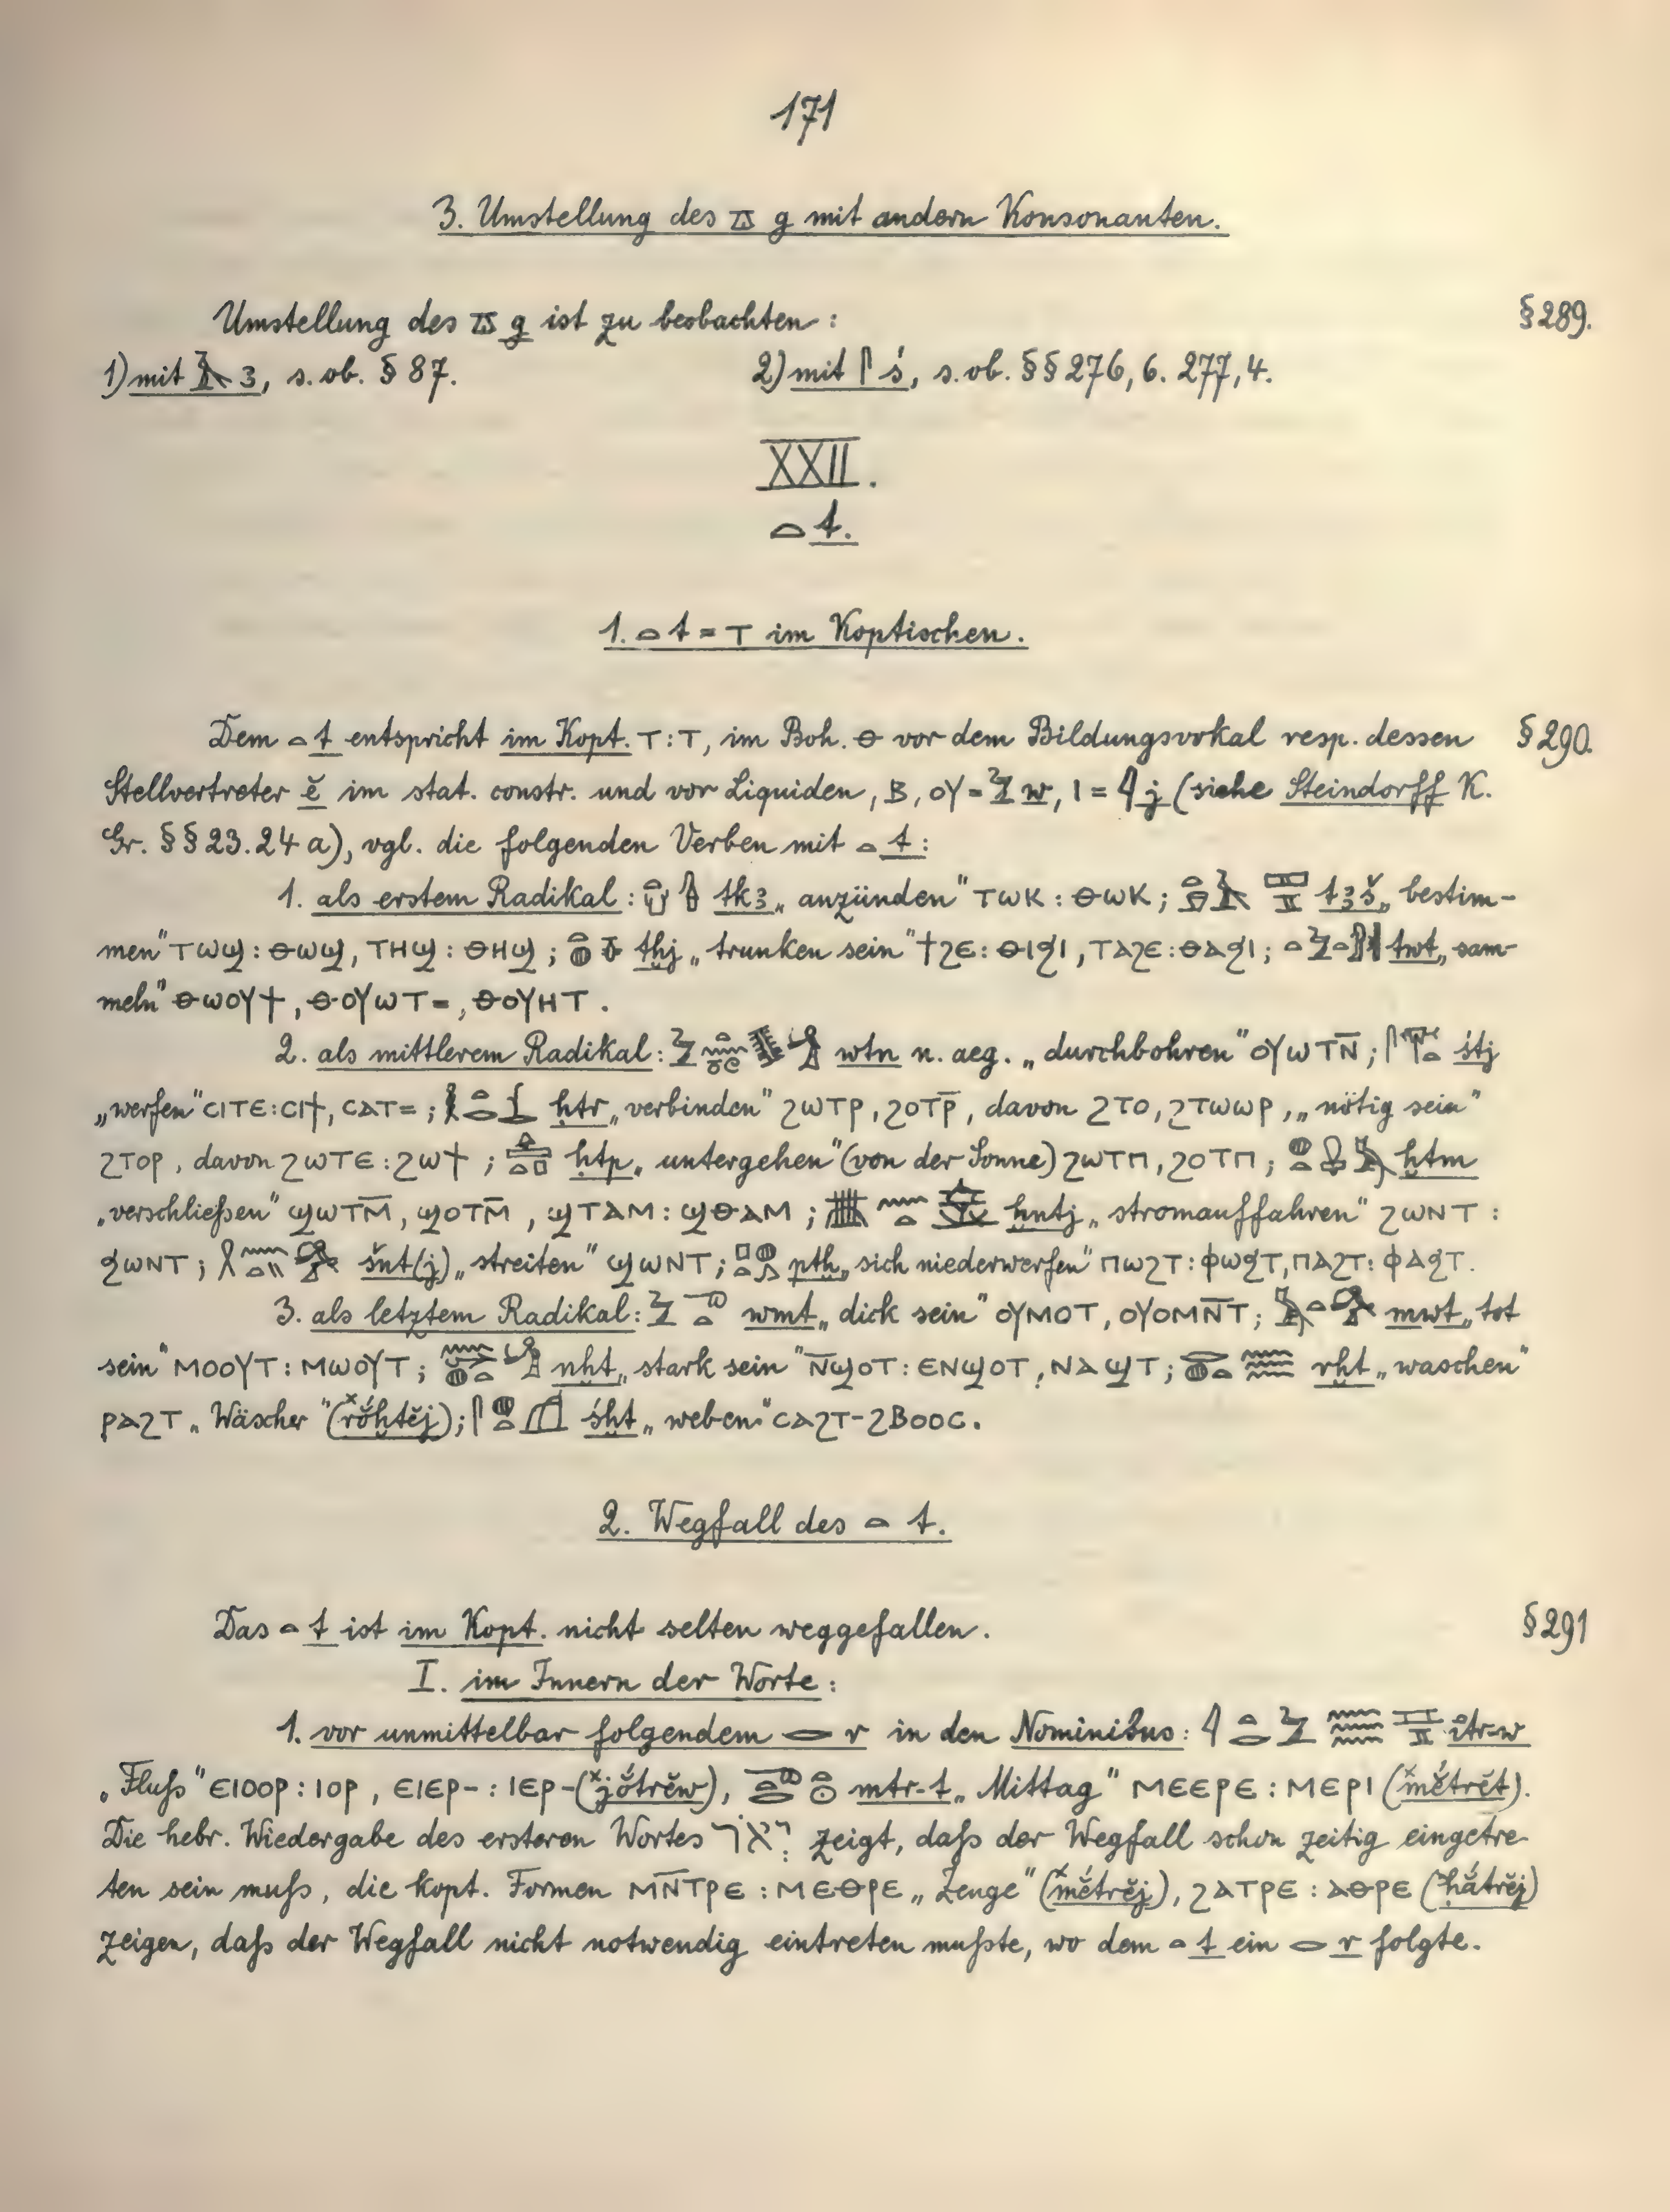 171
3. Umstellung des 𓎼 g mit andern Konsonanten.
Umstellung des 𓎼 g ist zu beobachten : § 289.
1) mit 𓄿 ꜣ, s. ob. § 87. 2) mit 𓋴 ś, s. ob. §§ 276, 6. 277, 4.
XXII.
𓏏 t.
1. 𓏏 t = ⲧ im Koptischen.
Dem 𓏏 t entspricht im Kopt. ⲧ : ⲧ, im Boh. ⲑ vor dem Bildungsvokal resp. dessen § 290.
Stellvertreter ĕ im stat. constr. und vor Liquiden, ⲃ, ⲟⲩ = 𓅱 w, ⲓ = 𓇋 j (siehe Steindorff K.
Gr. §§ 23. 24 a), vgl. die folgenden Verben mit 𓏏 t :
1. als erstem Radikal : tkꜣ „anzünden" ⲧⲱⲕ : ⲑⲱⲕ ; tꜣš „bestim-
men" ⲧⲱϣ : ⲑⲱϣ, ⲧⲏϣ : ⲑⲏϣ ; tḫj „trunken sein" ϯϩⲉ : ⲑⲓϧⲓ, ⲧⲁϩⲉ : ⲑⲁϧⲓ ; twt „sam-
meln" ⲑⲱⲟⲩϯ, ⲑⲟⲩⲱⲧ=, ⲑⲟⲩⲏⲧ.
2. als mittlerem Radikal : wtn n. aeg. „durchbohren" ⲟⲩⲱⲧⲛ̅ ; śtj
„werfen" ⲥⲓⲧⲉ : ⲥⲓϯ, ⲥⲁⲧ= ; ḥtr „verbinden" ϩⲱⲧⲣ, ϩⲟⲧⲣ̅, davon ϩⲧⲟ, ϩⲧⲱⲱⲣ, „nötig sein"
ϩⲧⲟⲣ, davon ϩⲱⲧⲉ : ϩⲱϯ ; ḥtp „untergehen" (von der Sonne) ϩⲱⲧⲡ, ϩⲟⲧⲡ ; ḫtm
„verschließen" ϣⲱⲧⲙ̅, ϣⲟⲧⲙ̅, ϣⲧⲁⲙ : ϣⲑⲁⲙ ; ḫntj „stromauffahren" ϩⲱⲛⲧ :
ϧⲱⲛⲧ ; šnt(j) „streiten" ϣⲱⲛⲧ ; ptḫ „sich niederwerfen" ⲡⲱϩⲧ : ⲫⲱϧⲧ, ⲡⲁϩⲧ : ⲫⲁϧⲧ.
3. als letztem Radikal : wmt „dick sein" ⲟⲩⲙⲟⲧ, ⲟⲩⲟⲙⲛ̅ⲧ ; mwt „tot
sein" ⲙⲟⲟⲩⲧ : ⲙⲱⲟⲩⲧ ; nḫt „stark sein" ⲛ̅ϣⲟⲧ : ⲉⲛϣⲟⲧ, ⲛⲁϣⲧ ; rḫt „waschen"
ⲣⲁϩⲧ „Wäscher" (ˣrŏ́ḫtĕj) ; śḫt „weben" ⲥⲁϩⲧ-ϩⲃⲟⲟⲥ.
2. Wegfall des 𓏏 t.
Das 𓏏 t ist im Kopt. nicht selten weggefallen. § 291
I. im Innern der Worte :
1. vor unmittelbar folgendem 𓂋 r in den Nominibus : itr-w
„Fluß" ⲉⲓⲟⲟⲣ : ⲓⲟⲣ, ⲉⲓⲉⲣ- : ⲓⲉⲣ- (ˣjŏ́trĕw), mtr-t „Mittag" ⲙⲉⲉⲣⲉ : ⲙⲉⲣⲓ (ˣmĕ́trĕt).
Die hebr. Wiedergabe des ersteren Wortes יְאֹר zeigt, daß der Wegfall schon zeitig eingetre-
ten sein muß, die kopt. Formen ⲙⲛ̅ⲧⲣⲉ : ⲙⲉⲑⲣⲉ „Zeuge" (ˣmĕ́trĕj), ϩⲁⲧⲣⲉ : ⲁⲑⲣⲉ (ˣḥắtrĕj)
zeigen, daß der Wegfall nicht notwendig eintreten mußte, wo dem 𓏏 t ein 𓂋 r folgte.